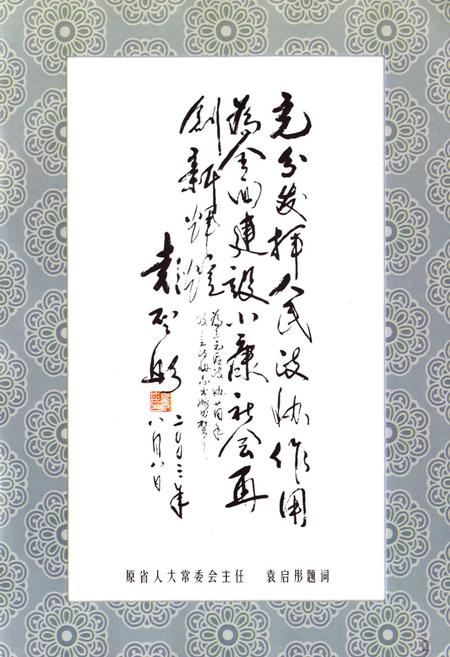 充分发挥人民政协作用
为全面建设小康社会再
创新辉煌
袁启彤
二〇〇三年
八月八日
原省人大常委会主任 袁启彤题词